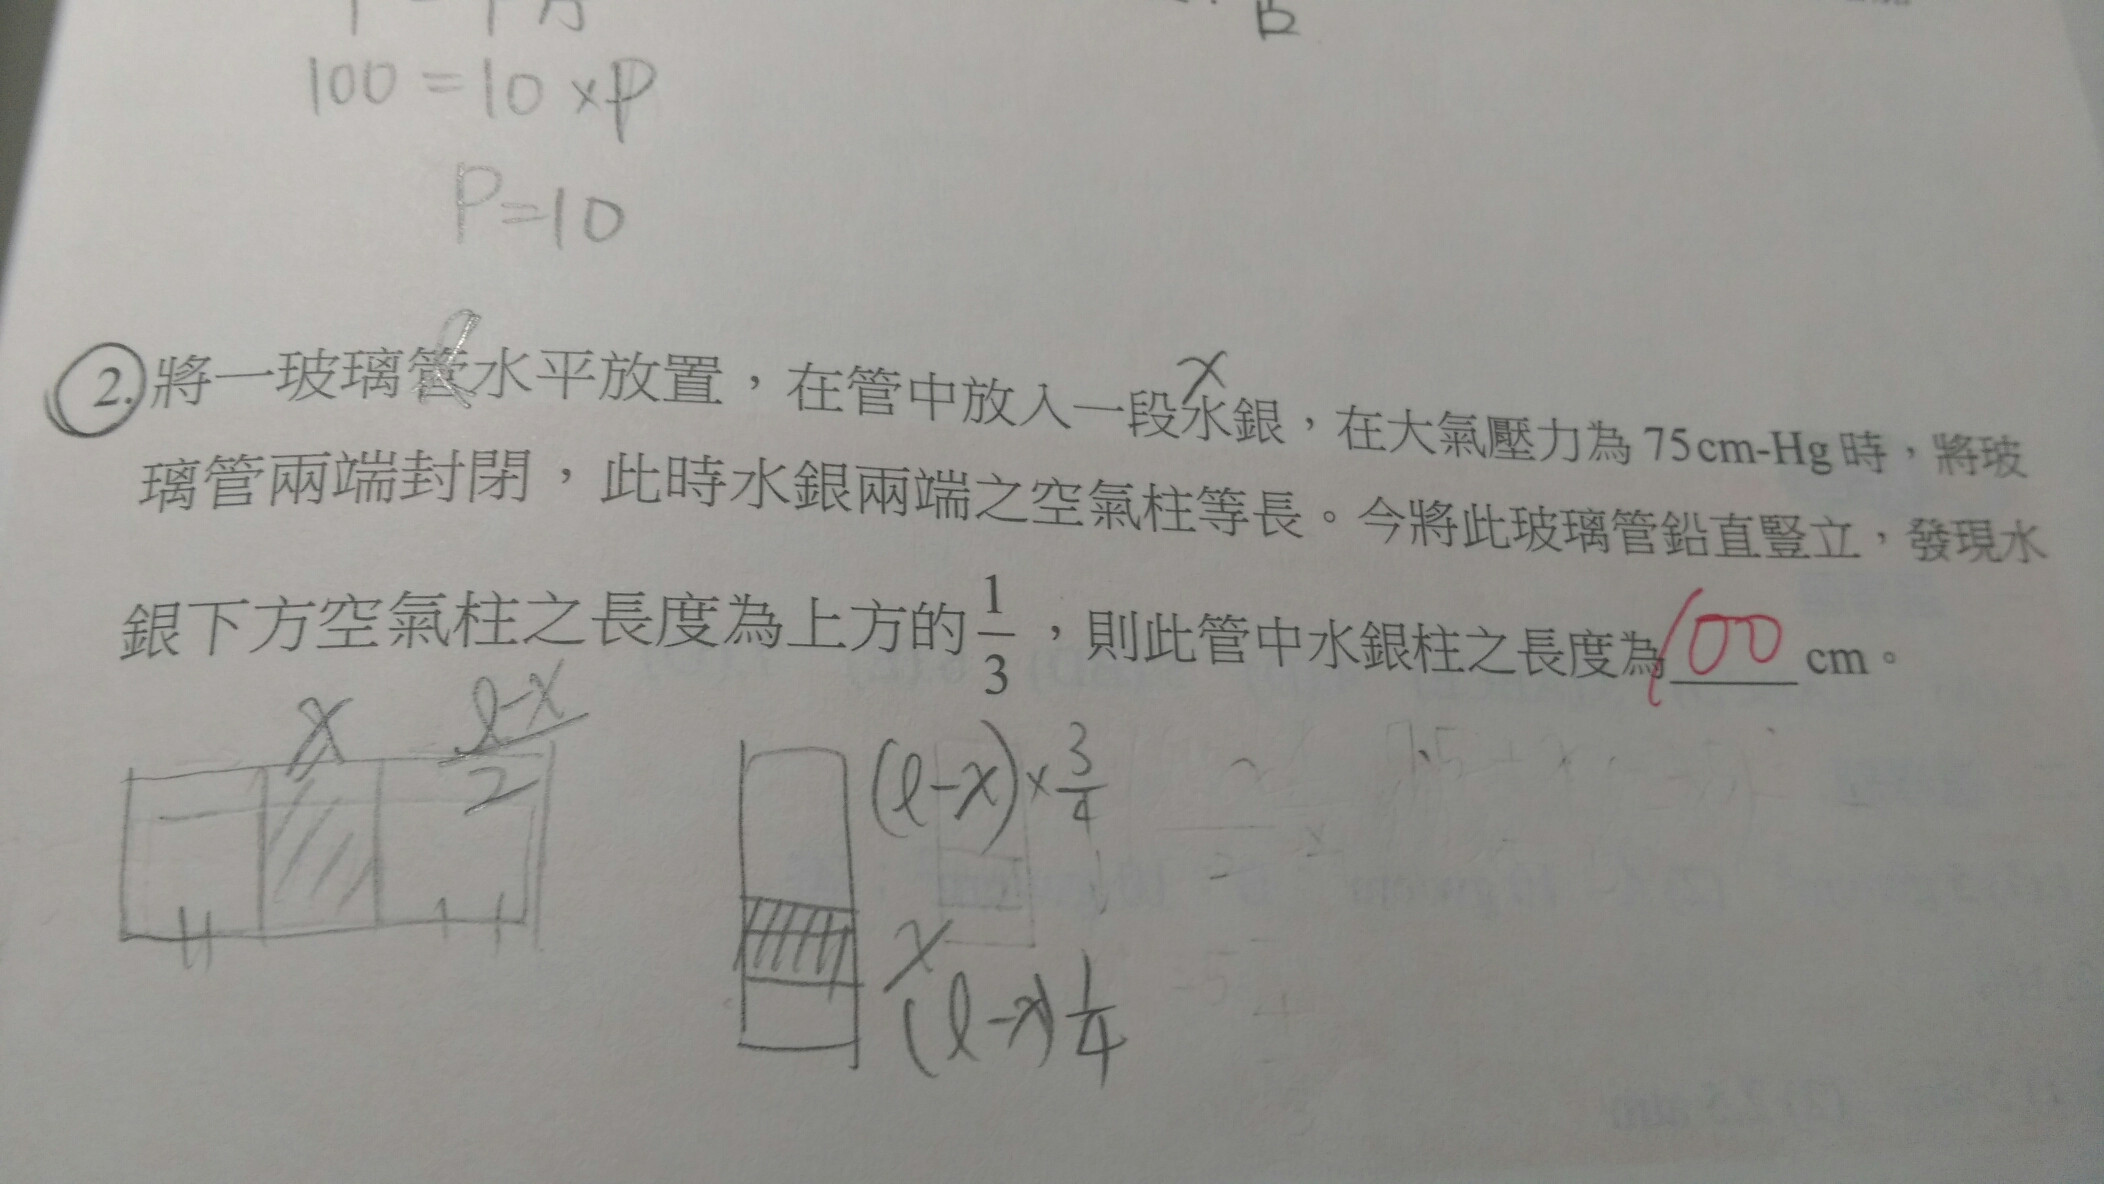 100 = 10 × P
P = 10
2. 將一玻璃管水平放置，在管中放入一段水銀，在大氣壓力為 75 cm-Hg 時，將玻
l
x
璃管兩端封閉，此時水銀兩端之空氣柱等長。今將此玻璃管鉛直豎立，發現水
銀下方空氣柱之長度為上方的 1/3，則此管中水銀柱之長度為 100 cm。
x
l-x/2
(l-x)×3/4
x
(l-x)1/4